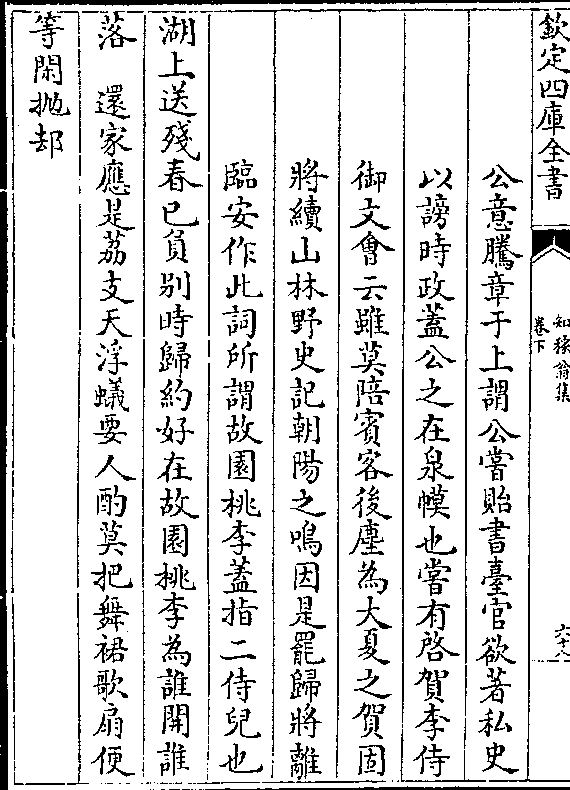 欽定四庫全書
知稼翁集
卷下
六十八
公意騰章于上謂公嘗貽書臺官欲著私史
以謗時政蓋公之在泉幙也嘗有啓賀李侍
御文會云雖莫陪賓客後塵為大夏之賀固
將續山林野史記朝陽之鳴因是罷歸將離
臨安作此詞所謂故園桃李蓋指二侍兒也
湖上送殘春已負别時歸約好在故園桃李為誰開誰
落　還家應是荔支天浮蟻要人酌莫把舞裙歌扇便
等閑抛却